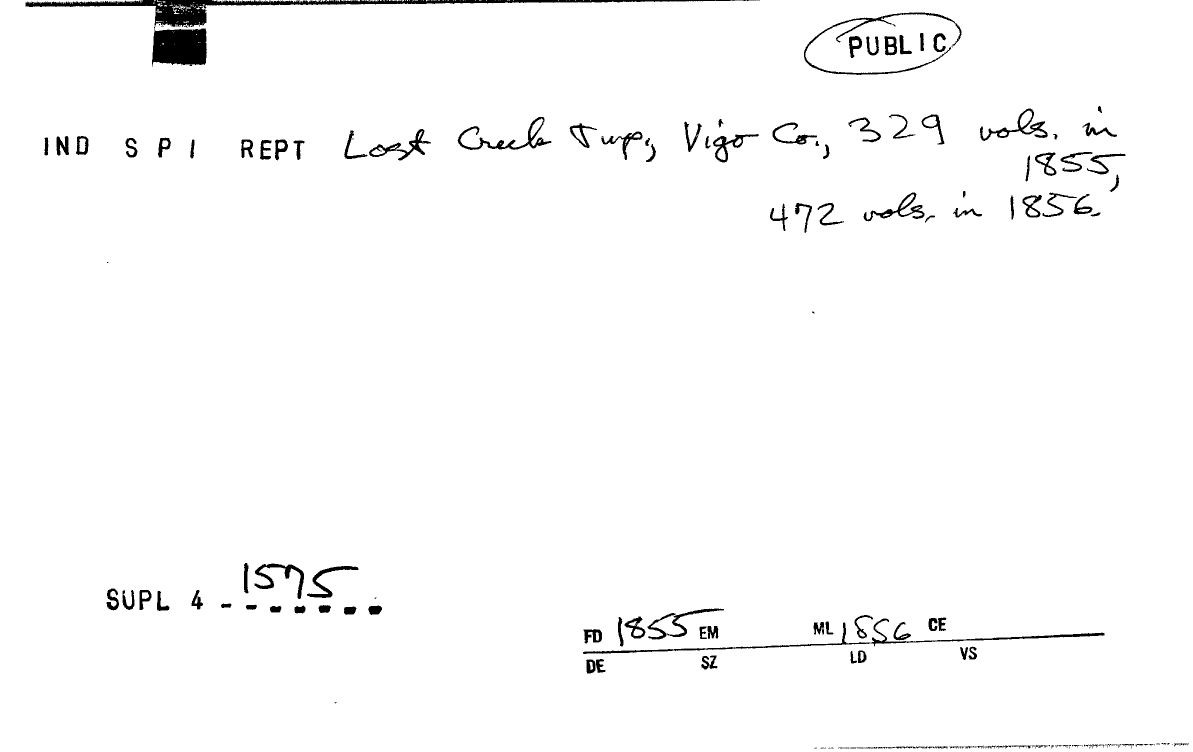 PUBLIC
IND S P I REPT Lost Creek Twp, Vigo Co., 329 vols. in
1855,
472 vols. in 1856.
SUPL 4 1575
FD 1855 EM ML 1856 CE
DE SZ LD VS